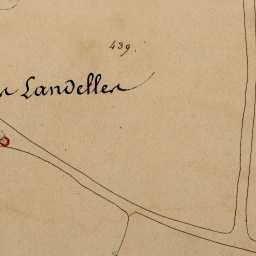 439.
Landelles